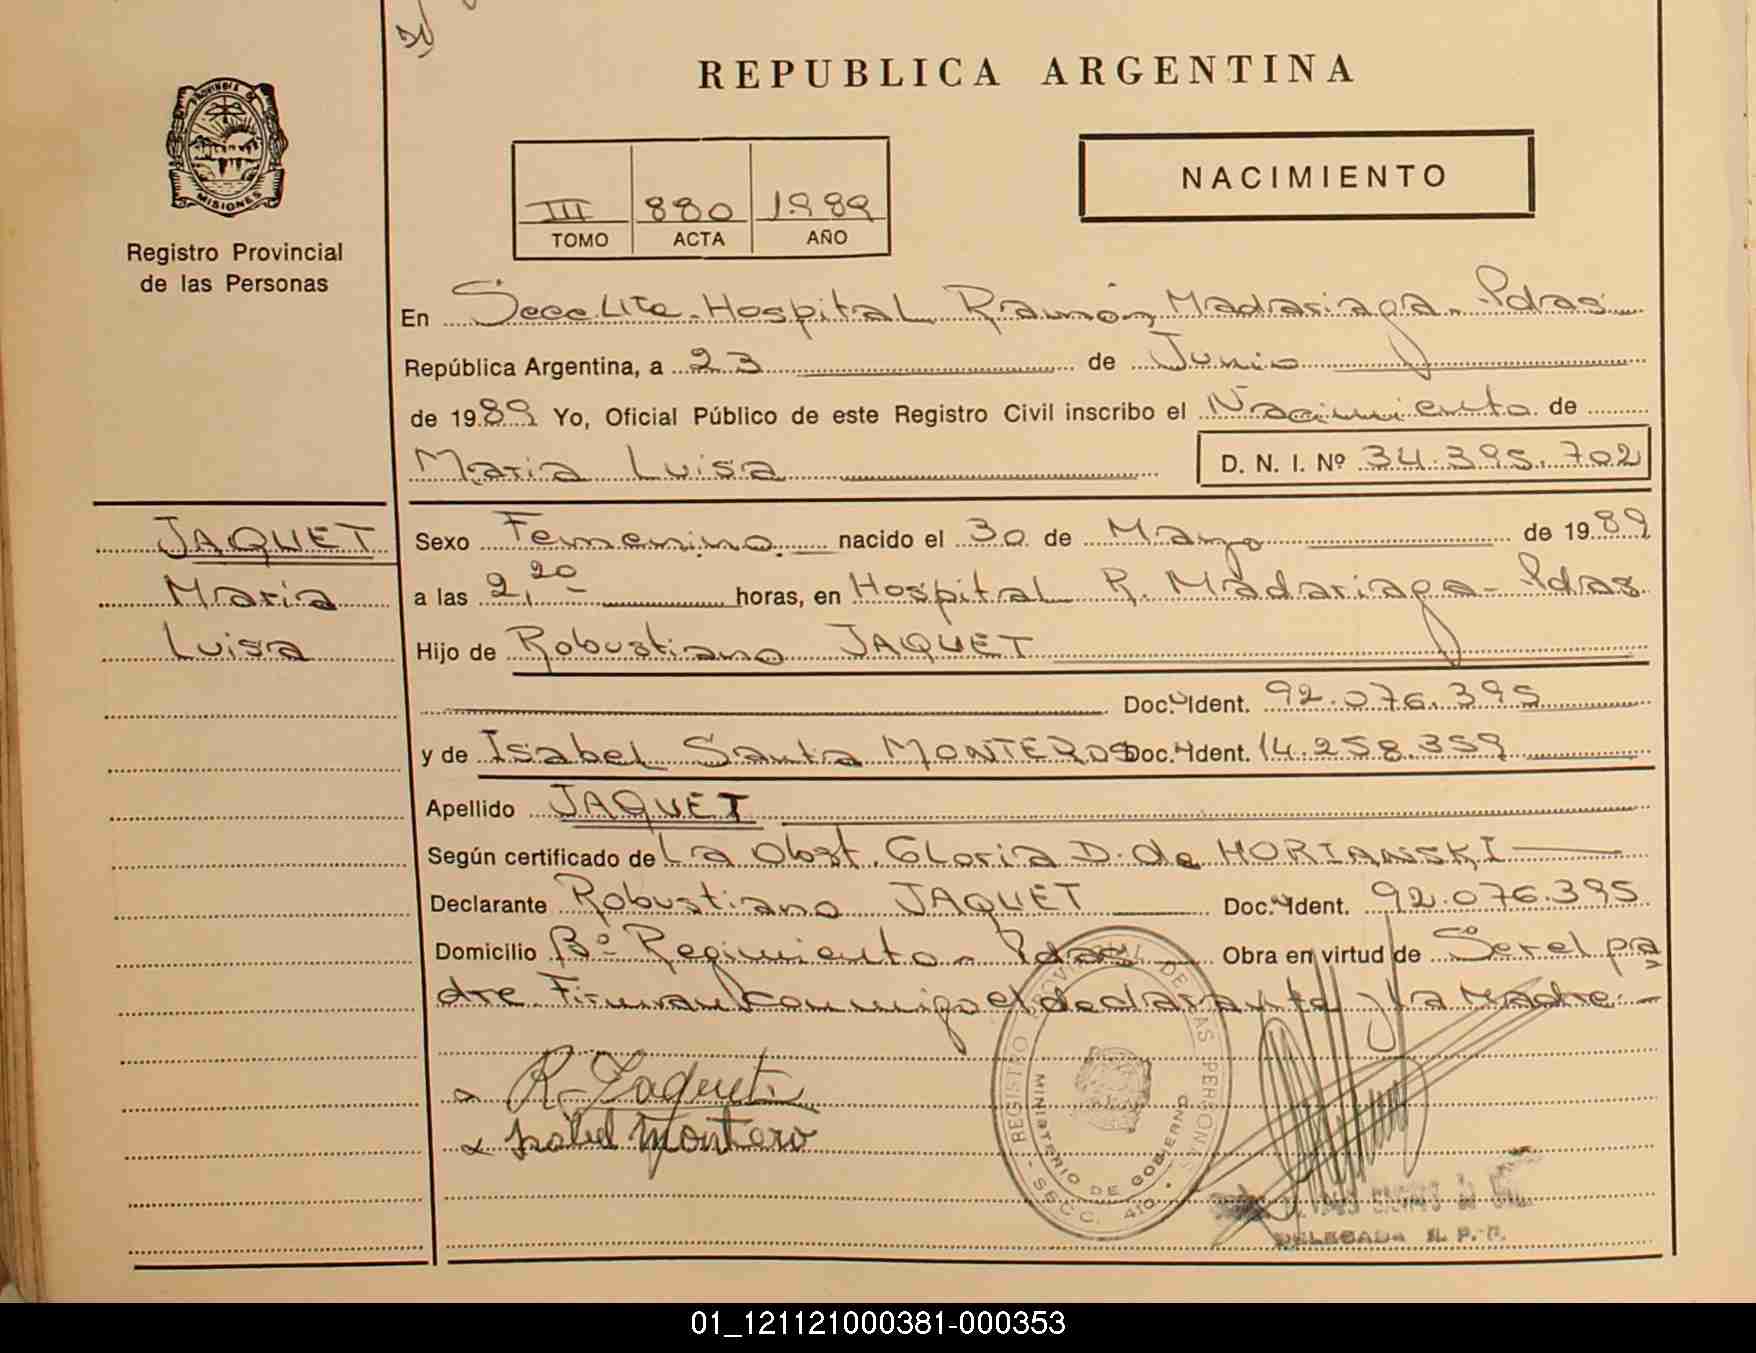 REPUBLICA ARGENTINA
PROVINCIA DE
MISIONES
Registro Provincial
de las Personas
III 880 1989
TOMO ACTA AÑO
NACIMIENTO
En Secc Lite. Hospital Ramón Madariaga. Pdas
República Argentina, a 23 de Junio
de 1989 Yo, Oficial Público de este Registro Civil inscribo el Nacimiento de
Maria Luisa D. N. I. Nº 34.395.702
JAQUET
Maria
Luisa
Sexo Femenino nacido el 30 de Marzo de 1989
a las 2,20 horas, en Hospital R. Madariaga - Pdas
Hijo de Robustiano JAQUET
Doc. Ident. 92.076.395
y de Isabel Santa MONTEROS Doc. Ident. 14.258.359
Apellido JAQUET
Según certificado de La Obst. Gloria D. de HORIANSKI
Declarante Robustiano JAQUET Doc. Ident. 92.076.395
Domicilio Bº Regimiento - Pdas Obra en virtud de Ser el pa
dre. Firman conmigo el declarante y la Madre. -
R. Jaquet
Isabel Montero
REGISTRO PROVINCIAL DE LAS PERSONAS - SECC. 410
MINISTERIO DE GOBIERNO
DELEGADA R. P. P.
01_121121000381-000353